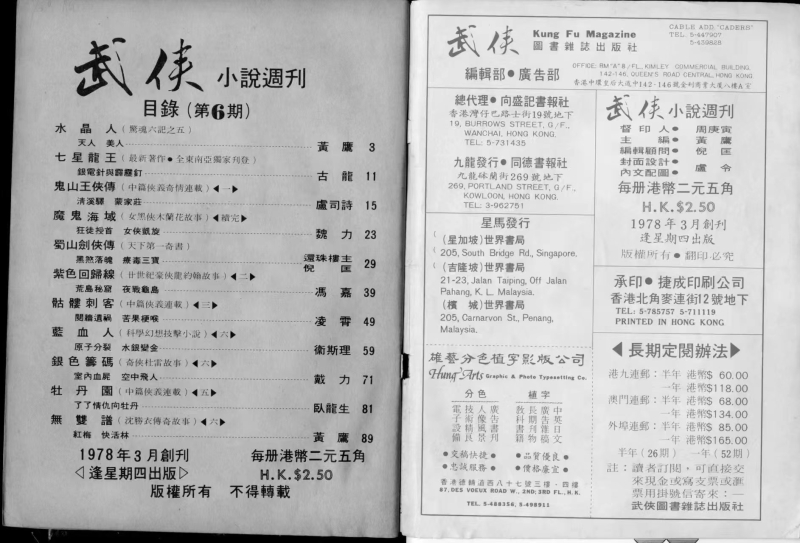 武俠 小說週刊
目錄(第6期)
水晶人(驚魂六記之五)
天人 美人 黃鷹 3
七星龍王(最新著作●全東南亞獨家刊登)
銀電針與霹靂釘 古龍 11
鬼山王俠傳(中篇俠義奇情連載)◀一▶
清溪驛 蒙家莊 盧司詩 15
魔鬼海域(女黑俠木蘭花故事)◀續完▶
狂徒授首 女俠凱旋 魏力 23
蜀山劍俠傳(天下第一奇書)
黑煞落魄 療毒三寶 還珠樓主 倪匡 29
紫色回歸線(廿世紀豪俠龍約翰故事)◀二▶
荒島秘窟 夜戰龜島 馮嘉 39
骷髏刺客(中篇俠義連載)◀三▶
閱牆遺禍 苦果梗喉 凌霄 49
藍血人(科學幻想技擊小說)◀六▶
原子分裂 水銀變金 衞斯理 59
銀色籌碼(奇俠杜雷故事)◀六▶
室內血屍 空中飛人 戴力 71
牡丹園(中篇俠義連載)◀五▶
了了情仇向牡丹 臥龍生 81
無雙譜(沈勝衣傳奇故事)◀六▶
紅梅 快活林 黃鷹 89
1978年3月創刊 每册港幣二元五角
◁逢星期四出版▷ H.K.$2.50
版權所有 不得轉載
武俠 Kung Fu Magazine
圖書雜誌出版社
編輯部●廣告部
CABLE ADD, "CADERS"
TEL. 5-447907
5-438628
OFFICE: RM "A" 8/FL., KIMLEY COMMERCIAL BUILDING,
142-146, QUEEN'S ROAD CENTRAL, HONG KONG
香港中環皇后大道中142-146號金利商業大厦八樓A室
總代理●向盛記書報社
香港灣仔巴路士街19號地下
19, BURROWS STREET, G/F.,
WANCHAI, HONG KONG.
TEL: 5-731435
九龍發行●同德書報社
九龍砵蘭街269號地下
269, PORTLAND STREET, G/F.,
KOWLOON, HONG KONG.
TEL: 3-962751
星馬發行
(星加坡)世界書局
205, South Bridge Rd., Singapore.
(吉隆坡)世界書局
21-23, Jalan Taiping, Off Jalan
Pahang, K. L. Malaysia.
(檳城)世界書局
205, Carnarvon St., Penang,
Malaysia.
雄藝分色植字影版公司
Hung Arts Graphic & Photo Typesetting Co.
分色 植字
電子分色 技術精良 人像風景 廣告書刊設備
廣告期刊 中英日文 敎科書籍 文稿雜物
●交稿快捷● ●品質優良●
●忠誠服務● ●價格廉宜●
香港德輔道西八十七號三樓・四樓
87, DES VOEUX ROAD W., 2ND; 3RD FL., H.K.
TEL. 5-488356, 5-498911
武俠小說週刊
督印人●周庚寅
主編●黃鷹
編輯顧問●倪匡
封面設計●
內文配圖● 盧令
每册港幣二元五角
H.K.$2.50
1978年3月創刊
逢星期四出版
版權所有●翻印必究
承印●捷成印刷公司
香港北角麥連街12號地下
TEL: 5-785757 5-711119
PRINTED IN HONG KONG
◀長期定閱辦法▶
港九連郵:半年 港幣$ 60.00
一年 港幣$118.00
澳門連郵:半年 港幣$ 68.00
一年 港幣$134.00
外埠連郵:半年 港幣$ 85.00
一年 港幣$165.00
半年(26期) 一年(52期)
註:讀者訂閱,可直接交
來現金或寫支票或滙
票用掛號信寄來:—
武俠圖書雜誌出版社